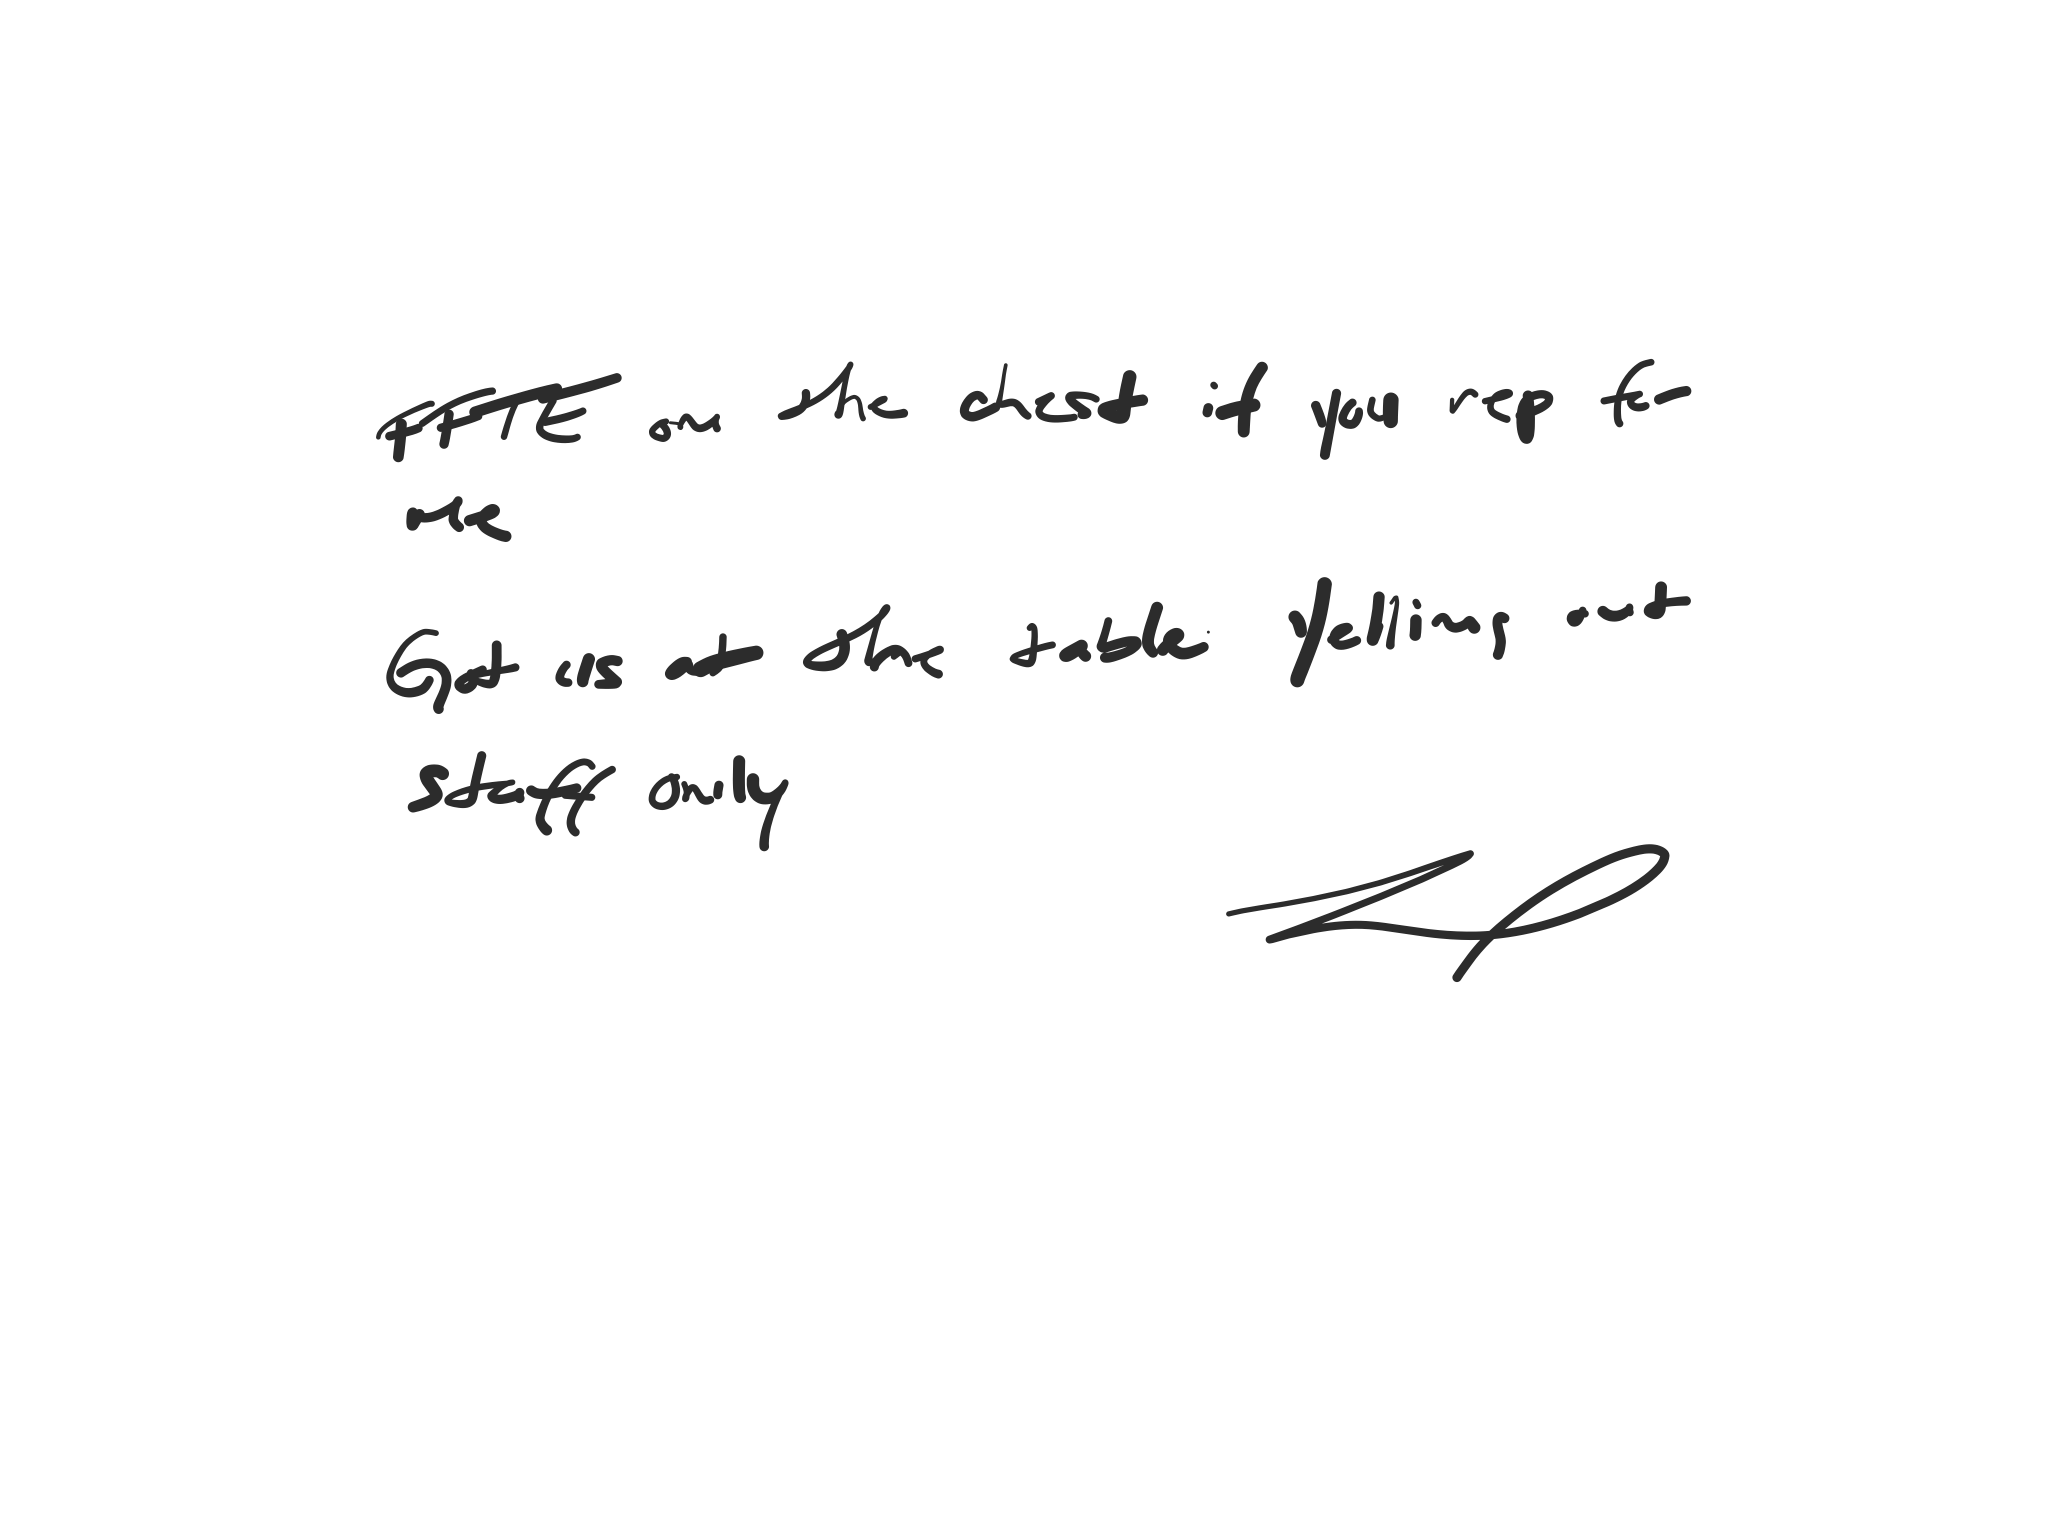 FFTE on the chest if you rep for
me
Got us at the table Yelling out
staff only